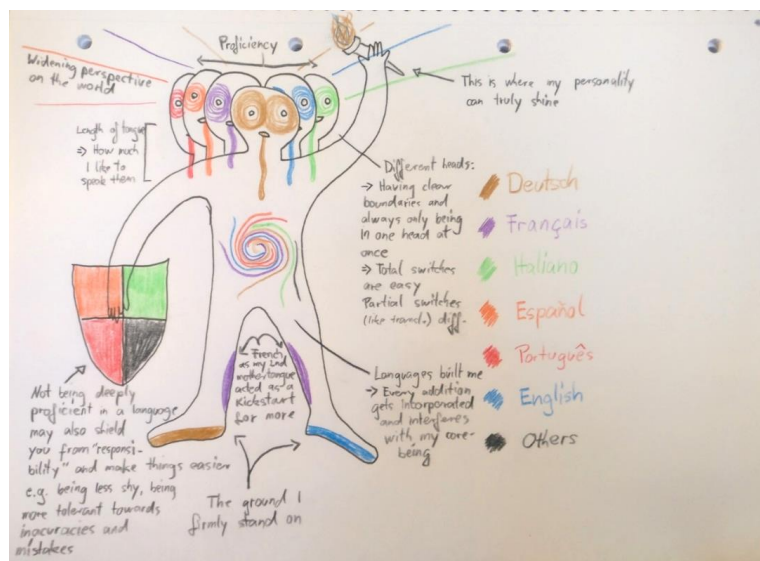 Proficiency
Widening perspective
on the world
This is where my personality
can truly shine
Length of tongue
⇒ How much
I like to
speak them
Different heads:
→ Having clear
boundaries and
always only being
in one head at
once
⇒ Total switches
are easy
Partial switches
(like transl.) diff.
Deutsch
Français
Italiano
Español
Português
English
Others
French
as my 2nd
mothertongue
acted as a
Kickstart
for more
Languages built me
→ Every addition
gets incorporated
and interferes
with my core-
being
Not being deeply
proficient in a language
may also shield
you from "responsi-
bility" and make things easier
e.g. being less shy, being
more tolerant towards
inacuracies and
mistakes
The ground I
firmly stand on